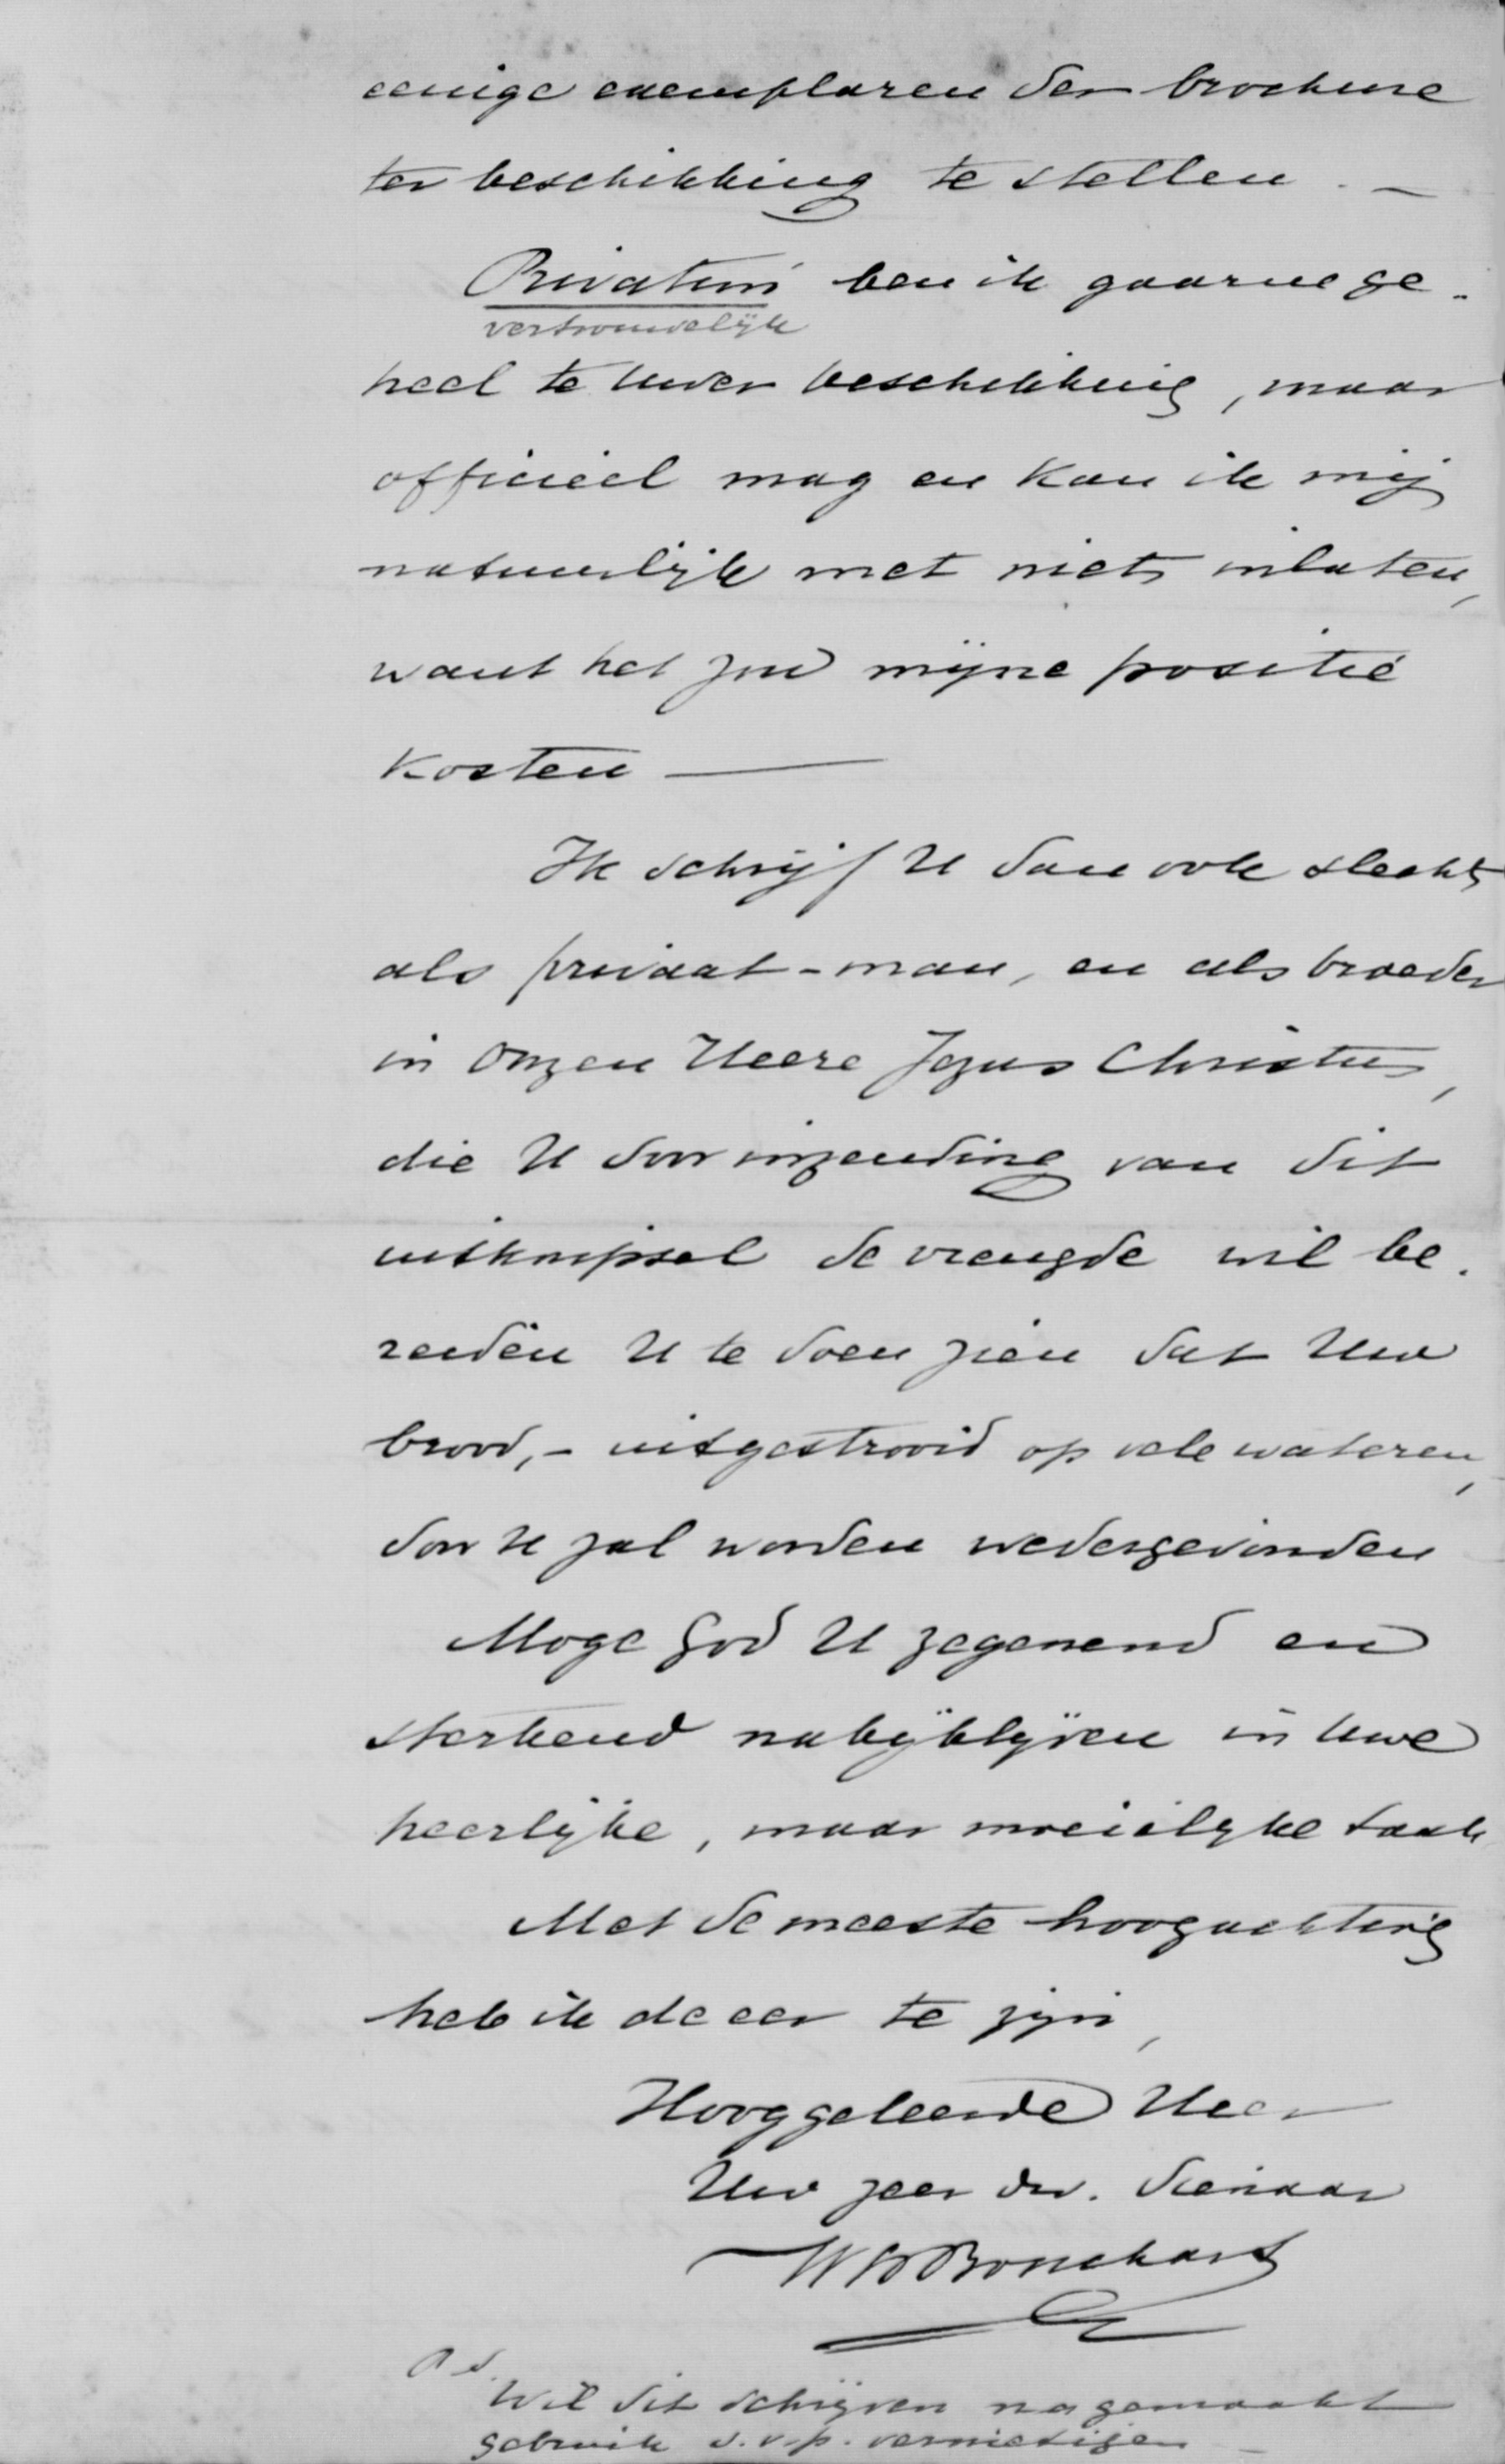 eenige exemplaren der brochure
ter beschikking te stellen. —
Privatim ben ik gaarne ge-
vertrouwelijk
heel te Uwer beschikking, maar
officieel mag en kan ik mij
natuurlijk met niets inlaten,
want het zou mijne positie
kosten —
Ik schrijf U dan ook slechts
als privaat-man, en als broeder
in onzen Heere Jezus Christus,
die U door inzending van dit
uitknipsel de vreugde wil be-
reiden U te doen zien dat Uw
brood, - uitgestrooid op vele wateren,
door U zal worden wedergevonden
Moge God U zegenend en
sterkend nabijblijven in Uwe
heerlijke, maar moeielijke taak
Met de meeste hoogachting
heb ik de eer te zijn,
Hooggeleerde Heer
Uw zeer dw. dienaar
Bouchart
P.S.
Wil dit schrijven na gemaakt
gebruik s.v.p. vernietigen